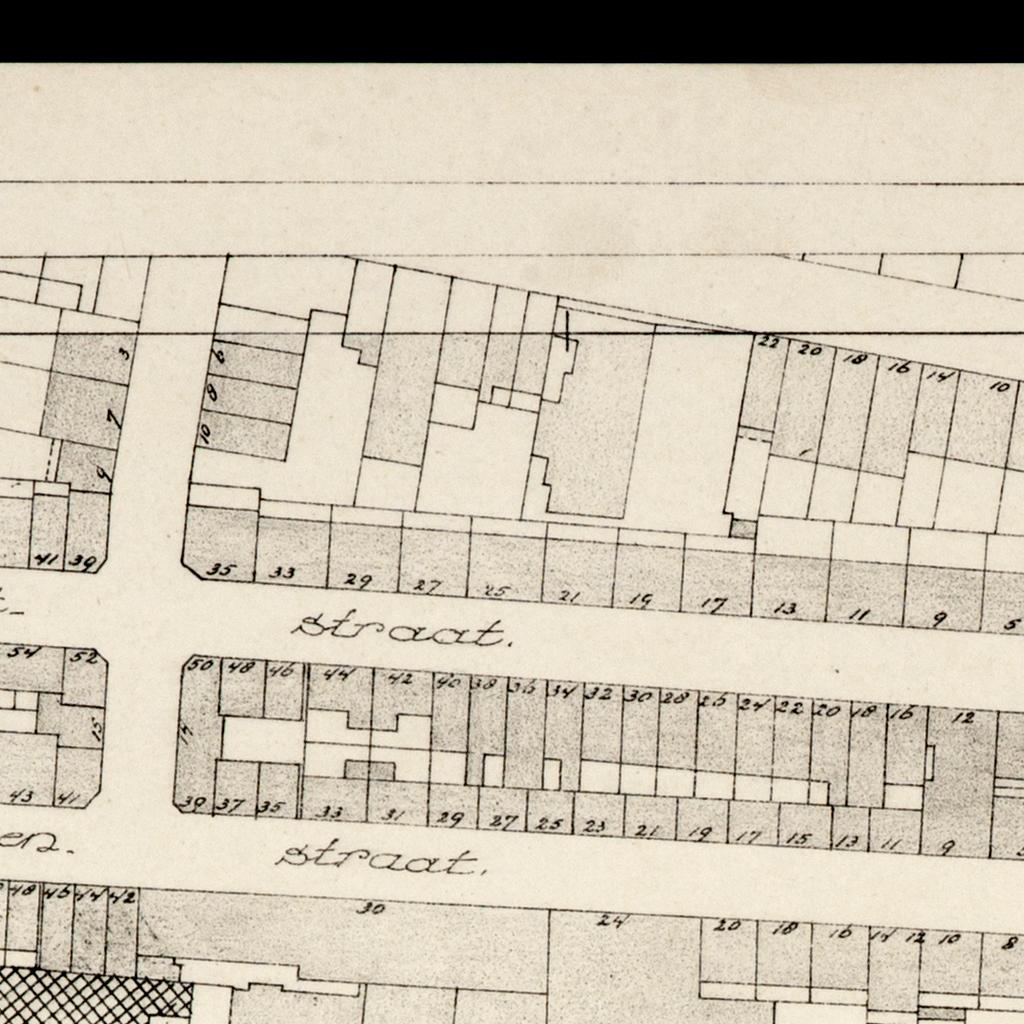 22 20 18 16 14 10
3
6
8
7
10
9
41 39
35 33 29 27 25 21 19 17 13 11 9 5
straat.
54 52
50 48 46 44 42 40 38 36 34 32 30 28 26 24 22 20 18 16 12
15
43 41
39 37 35 33 31 29 27 25 23 21 19 17 15 13 11 9
en.
straat.
48 46 44 42
30 24
20 18 16 14 12 10 8